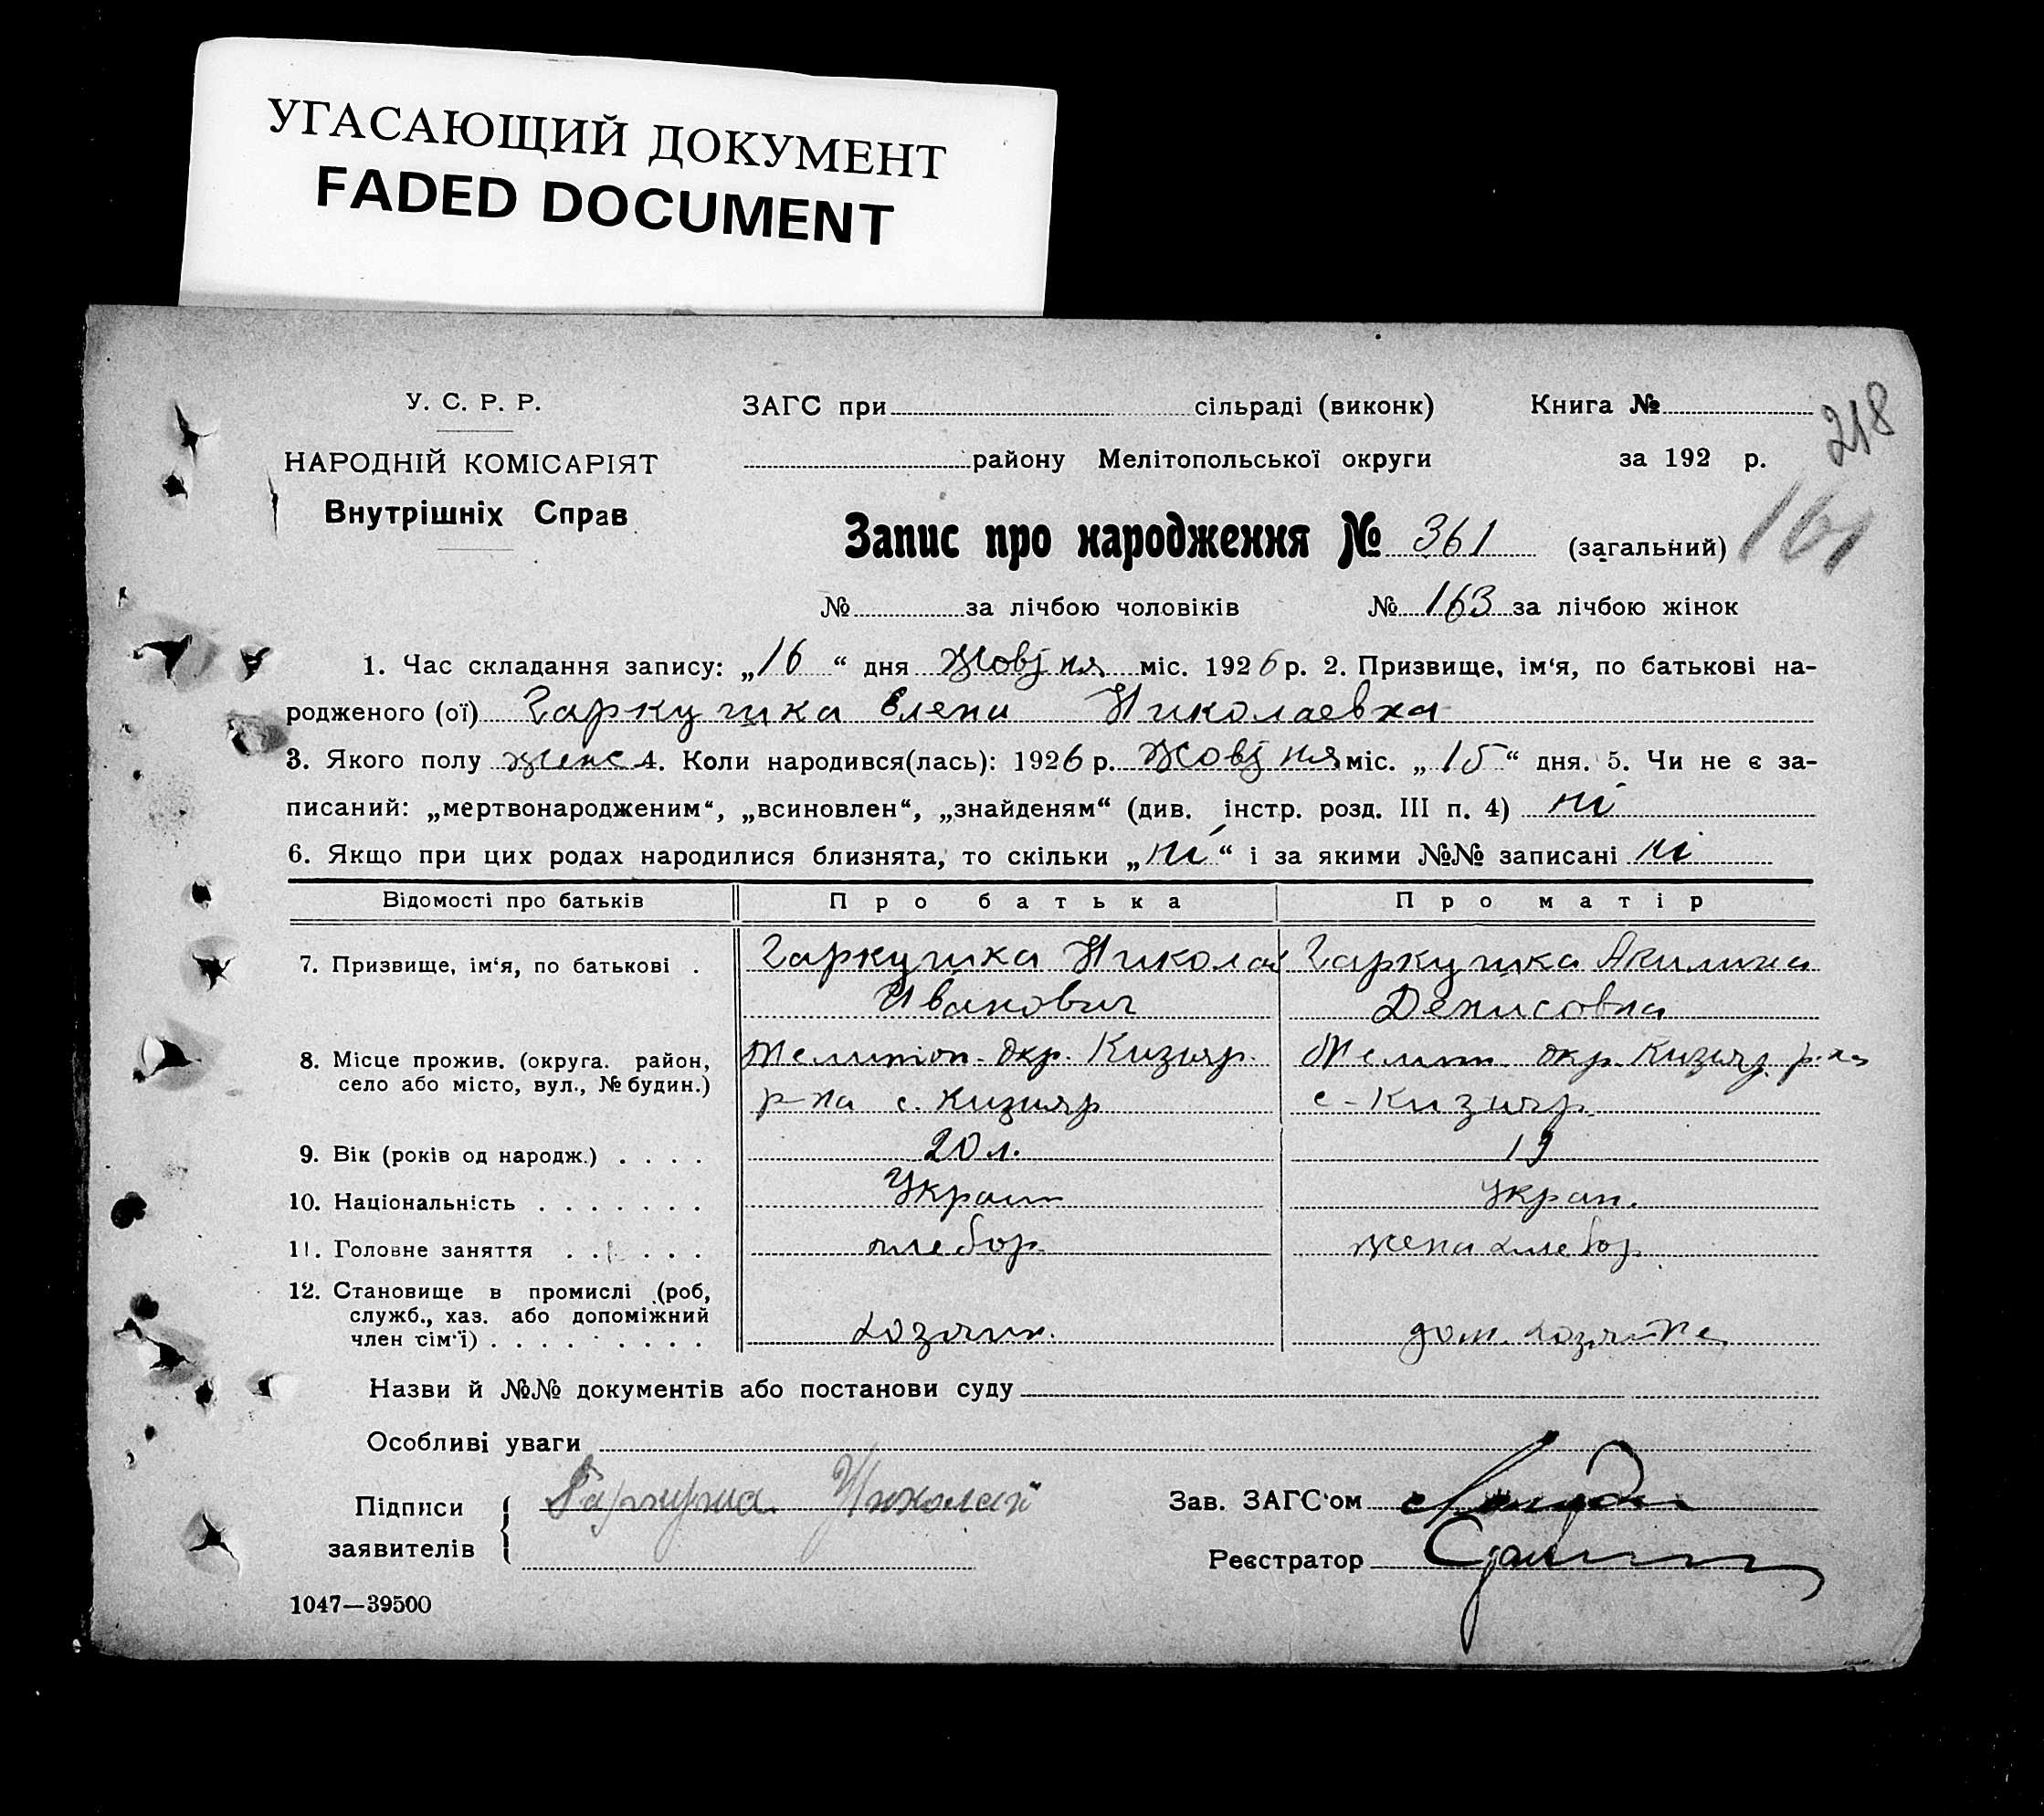 УГАСАЮЩИЙ ДОКУМЕНТ
FADED DOCUMENT
У. С. Р. Р.
НАРОДНІЙ КОМІСАРІЯТ
Внутрішніх Справ
ЗАГС при сільраді (виконк) Книга №
району Мелітопольської округи за 192 р.
218
Запис про народження № 361 (загальний)
161
№ за лічбою чоловіків № 163 за лічбою жінок
1. Час складання запису: „16“ дня Жовтня міс. 1926 р. 2. Призвище, ім‘я, по батькові на-
родженого (ої) Гаркушка Елена Николаевна
3. Якого полу женс 4. Коли народився(лась): 1926 р. Жовтня міс. „15“ дня. 5. Чи не є за-
писаний: „мертвонародженим“, „всиновлен“, „знайденям“ (див. інстр. розд. III п. 4) ні
6. Якщо при цих родах народилися близнята, то скільки „ні“ і за якими №№ записані ні
Відомості про батьків Про батька Про матір
7. Призвище, ім‘я, по батькові . Гаркушка Николай Гаркушка Акилина
Иванович Денисовна
8. Місце прожив. (округа. район, Мелитоп. окр. Кизияр. Мелит. окр. Кизияр. р-на
село або місто, вул., № будин.) р-на с. Кизияр с-Кизияр.
9. Вік (років од народж.) . . . . 20 л. 19
10. Національність . . . . . . . Украин Украин.
11. Головне заняття . . . . . хлебор. жена хлебор.
12. Становище в промислі (роб,
служб., хаз. або допоміжний
член сім‘ї) . . . . . . . . хозяин. дом. хозяйка
Назви й №№ документів або постанови суду
Особливі уваги
Підписи Гаркуша Николай Зав. ЗАГС‘ом
заявителів Реєстратор
1047—39500